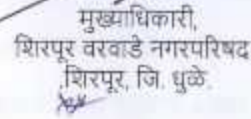 मुख्याधिकारी,
शिरपूर वरवाडे नगरपरिषद
शिरपूर, जि. धुळे.